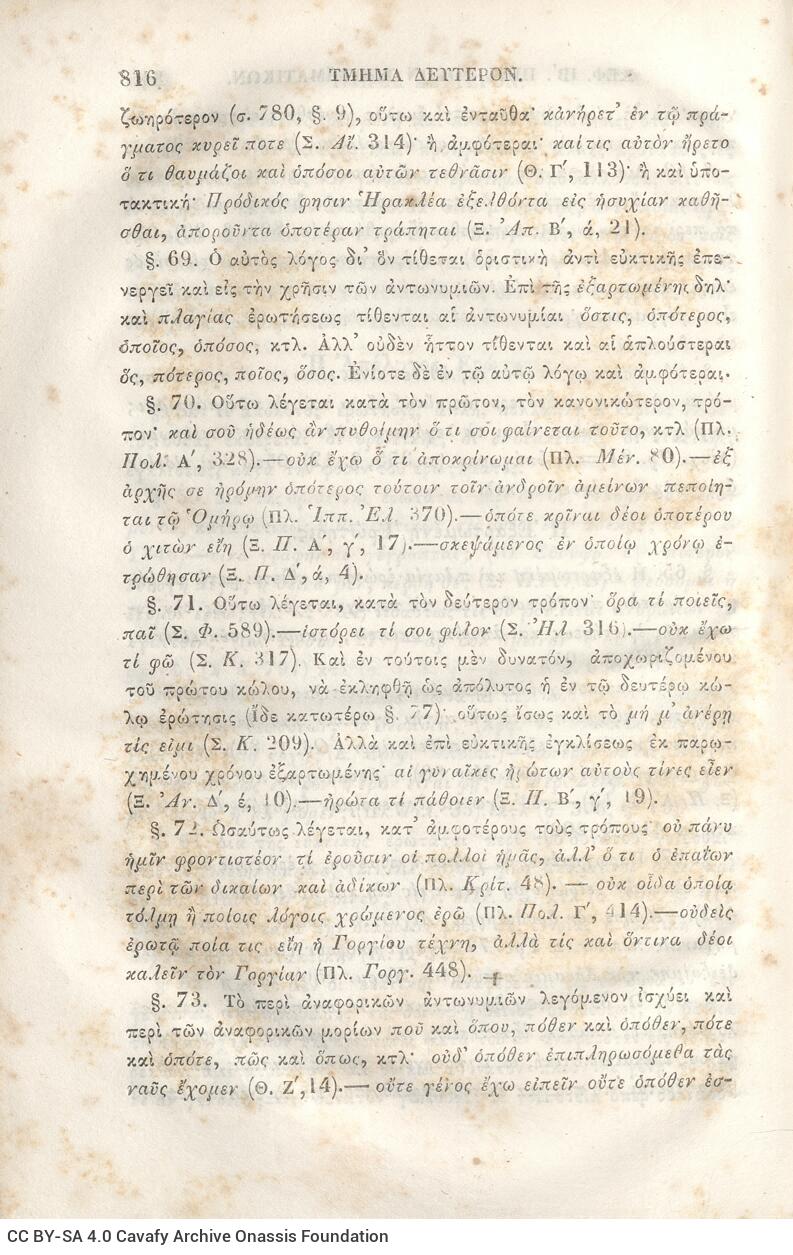 816 ΤΜΗΜΑ ΔΕΥΤΕΡΟΝ.
ζωηρότερον (σ. 780, §. 9), οὕτω καὶ ἐνταῦθα· κἀνήρετ’ ἐν τῷ πρά-
γματος κυρεῖ ποτε (Σ. Αἴ. 314)· ἢ ἀμφότεραι· καίτις αὐτὸν ἤρετο
ὅ τι θαυμάζοι καὶ ὁπόσοι αὐτῶν τεθνᾶσιν (Θ. Γ′, 113)· ἢ καὶ ὑπο-
τακτική· Πρόδικός φησιν Ἡρακλέα ἐξελθόντα εἰς ἡσυχίαν καθῆ-
σθαι, ἀποροῦντα ὁποτέραν τράπηται (Ξ. Ἀπ. Β′, ά, 21).
§. 69. Ὁ αὐτὸς λόγος δι’ ὃν τίθεται ὁριστικὴ ἀντὶ εὐκτικῆς ἐπε-
νεργεῖ καὶ εἰς τὴν χρῆσιν τῶν ἀντωνυμιῶν. Ἐπὶ τῆς ἐξαρτωμένης δηλ·
καὶ πλαγίας ἐρωτήσεως τίθενται αἱ ἀντωνυμίαι ὅστις, ὁπότερος,
ὁποῖος, ὁπόσος, κτλ. Ἀλλ’ οὐδὲν ἧττον τίθενται καὶ αἱ ἁπλούστεραι
ὅς, πότερος, ποῖος, ὅσος. Ἐνίοτε δὲ ἐν τῷ αὐτῷ λόγῳ καὶ ἀμφότεραι.
§. 70. Οὕτω λέγεται κατὰ τὸν πρῶτον, τὸν κανονικώτερον, τρό-
πον· καὶ σοῦ ἡδέως ἂν πυθοίμην ὅ τι σοι φαίνεται τοῦτο, κτλ (Πλ.
Πολ. Α′, 328).—οὐκ ἔχω ὅ τι ἀποκρίνωμαι (Πλ. Μέν. 80).—ἐξ
ἀρχῆς σε ἠρόμην ὁπότερος τούτοιν τοῖν ἀνδροῖν ἀμείνων πεποίη-
ται τῷ Ὁμήρῳ (Πλ. Ἱππ. Ἐλ 370).—ὁπότε κρῖναι δέοι ὁποτέρου
ὁ χιτὼν εἴη (Ξ. Π. Α′, γ′, 17).—σκεψάμενος ἐν ὁποίῳ χρόνῳ ἐ-
τρώθησαν (Ξ. Π. Δ′, ά, 4).
§. 71. Οὕτω λέγεται, κατὰ τὸν δεύτερον τρόπον· ὅρα τί ποιεῖς,
παῖ (Σ. Φ. 589).—ἱστόρει τί σοι φίλον (Σ. Ἠλ 316).—οὐκ ἔχω
τί φῶ (Σ. Κ. 317). Καὶ ἐν τούτοις μὲν δυνατόν, ἀποχωριζομένου
τοῦ πρώτου κώλου, νὰ ἐκληφθῇ ὡς ἀπόλυτος ἡ ἐν τῷ δευτέρῳ κώ-
λῳ ἐρώτησις (ἴδε κατωτέρω §. 77)· οὕτως ἴσως καὶ τὸ μή μ’ ἀνέρῃ
τίς εἰμι (Σ. Κ. 209). Ἀλλὰ καὶ ἐπὶ εὐκτικῆς ἐγκλίσεως ἐκ παρῳ-
χημένου χρόνου ἐξαρτωμένης· αἱ γυναῖκες ἠρώτων αὐτοὺς τίνες εἶεν
(Ξ. Ἀν. Δ′, έ, 10).—ἠρώτα τί πάθοιεν (Ξ. Π. Β′, γ′, 19).
§. 72. Ὡσαύτως λέγεται, κατ’ ἀμφοτέρους τοὺς τρόπους· οὐ πάνυ
ἡμῖν φροντιστέον τί ἐροῦσιν οἱ πολλοὶ ἡμᾶς, ἀλλ’ ὅ τι ὁ ἐπαΐων
περὶ τῶν δικαίων καὶ ἀδίκων (Πλ. Κρίτ. 48). — οὐκ οἶδα ὁποίᾳ
τόλμῃ ἢ ποίοις λόγοις χρώμενος ἐρῶ (Πλ. Πολ. Γ′, 414).—οὐδεὶς
ἐρωτᾷ ποία τις εἴη ἡ Γοργίου τέχνη, ἀλλὰ τίς καὶ ὅντινα δέοι
καλεῖν τὸν Γοργίαν (Πλ. Γοργ. 448).
§. 73. Τὸ περὶ ἀναφορικῶν ἀντωνυμιῶν λεγόμενον ἰσχύει καὶ
περὶ τῶν ἀναφορικῶν μορίων ποῦ καὶ ὅπου, πόθεν καὶ ὁπόθεν, πότε
καὶ ὁπότε, πῶς καὶ ὅπως, κτλ· οὐδ’ ὁπόθεν ἐπιπληρωσόμεθα τὰς
ναῦς ἔχομεν (Θ. Ζ′, 14).— οὔτε γένος ἔχω εἰπεῖν οὔτε ὁπόθεν ἐσ-
CC BY-SA 4.0 Cavafy Archive Onassis Foundation